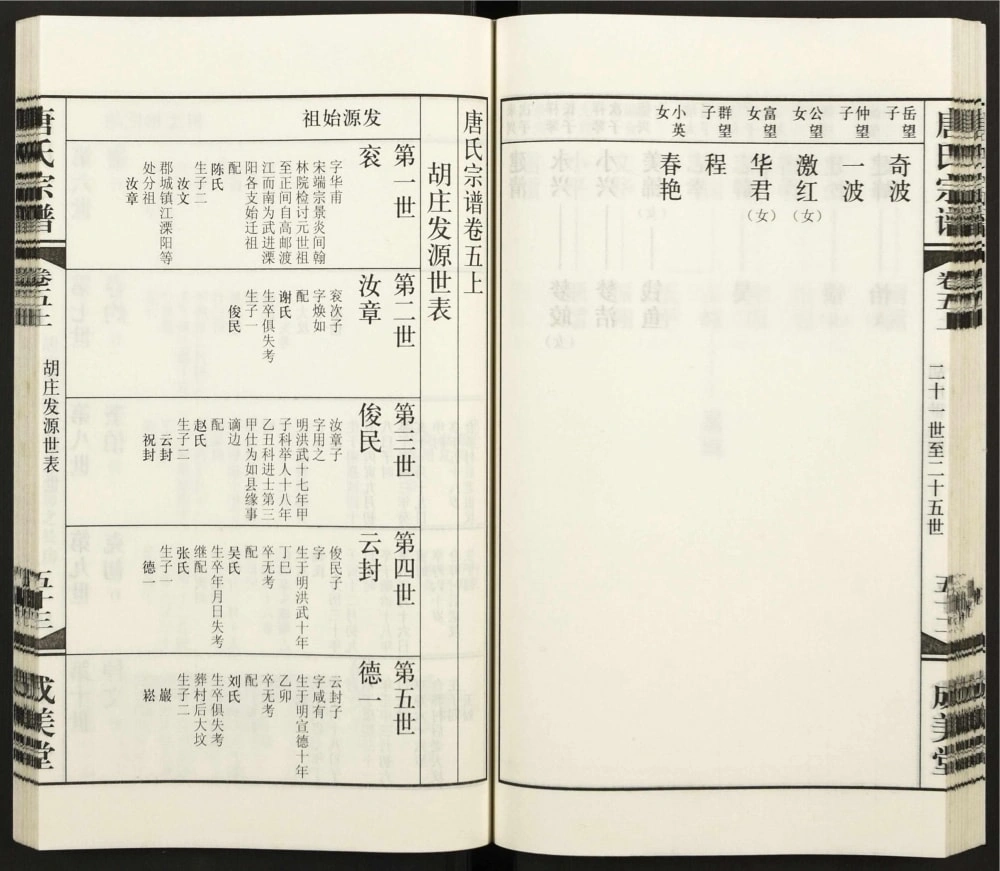 唐氏宗谱
卷五上
二十一世至二十五世
成美堂
岳望
子
奇波
仲望
子
一波
公望
女
激红（女）
富望
女
华君（女）
群望
子
程
小英
女
春艳
唐氏宗谱卷五上
胡庄发源世表
发源始祖
第一世
衮
字华甫
宋端宗景炎间翰
林院检讨元世祖
至正间自高邮渡
江而南为武进溧
阳各支始迁祖
配
陈氏
生子二
汝文
郡城镇江溧阳等
处分祖
汝章
第二世
汝章
衮次子
字焕如
配
谢氏
生卒俱失考
生子一
俊民
第三世
俊民
汝章子
字用之
明洪武十七年甲
子科举人十八年
乙丑科进士第三
甲仕为如县缘事
谪边
配
赵氏
生子二
云封
祝封
第四世
云封
俊民子
字
生于明洪武十年
丁巳
卒无考
配
吴氏
生卒年月日失考
继配
张氏
生子一
德一
第五世
德一
云封子
字咸有
生于明宣德十年
乙卯
卒无考
配
刘氏
生卒俱失考
葬村后大坟
生子二
巖
崧
唐氏宗谱
卷五上
胡庄发源世表
五十三
成美堂